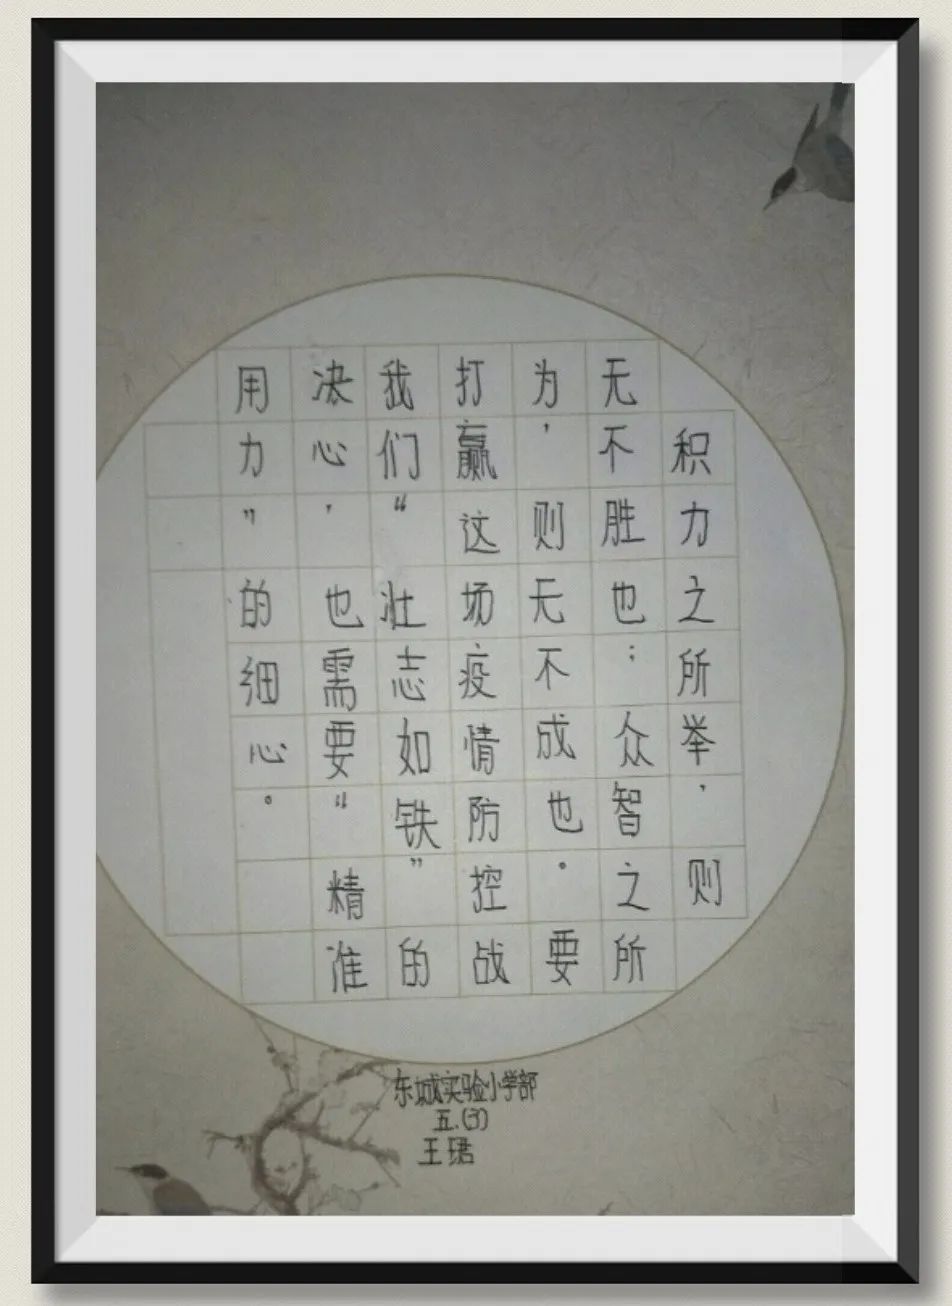 积力之所举，则
无不胜也；众智之所
为，则无不成也。要
打赢这场疫情防控战
我们“壮志如铁”的
决心，也需要“精准
用力”的细心。
东城实验小学部
五.(3)
王珺